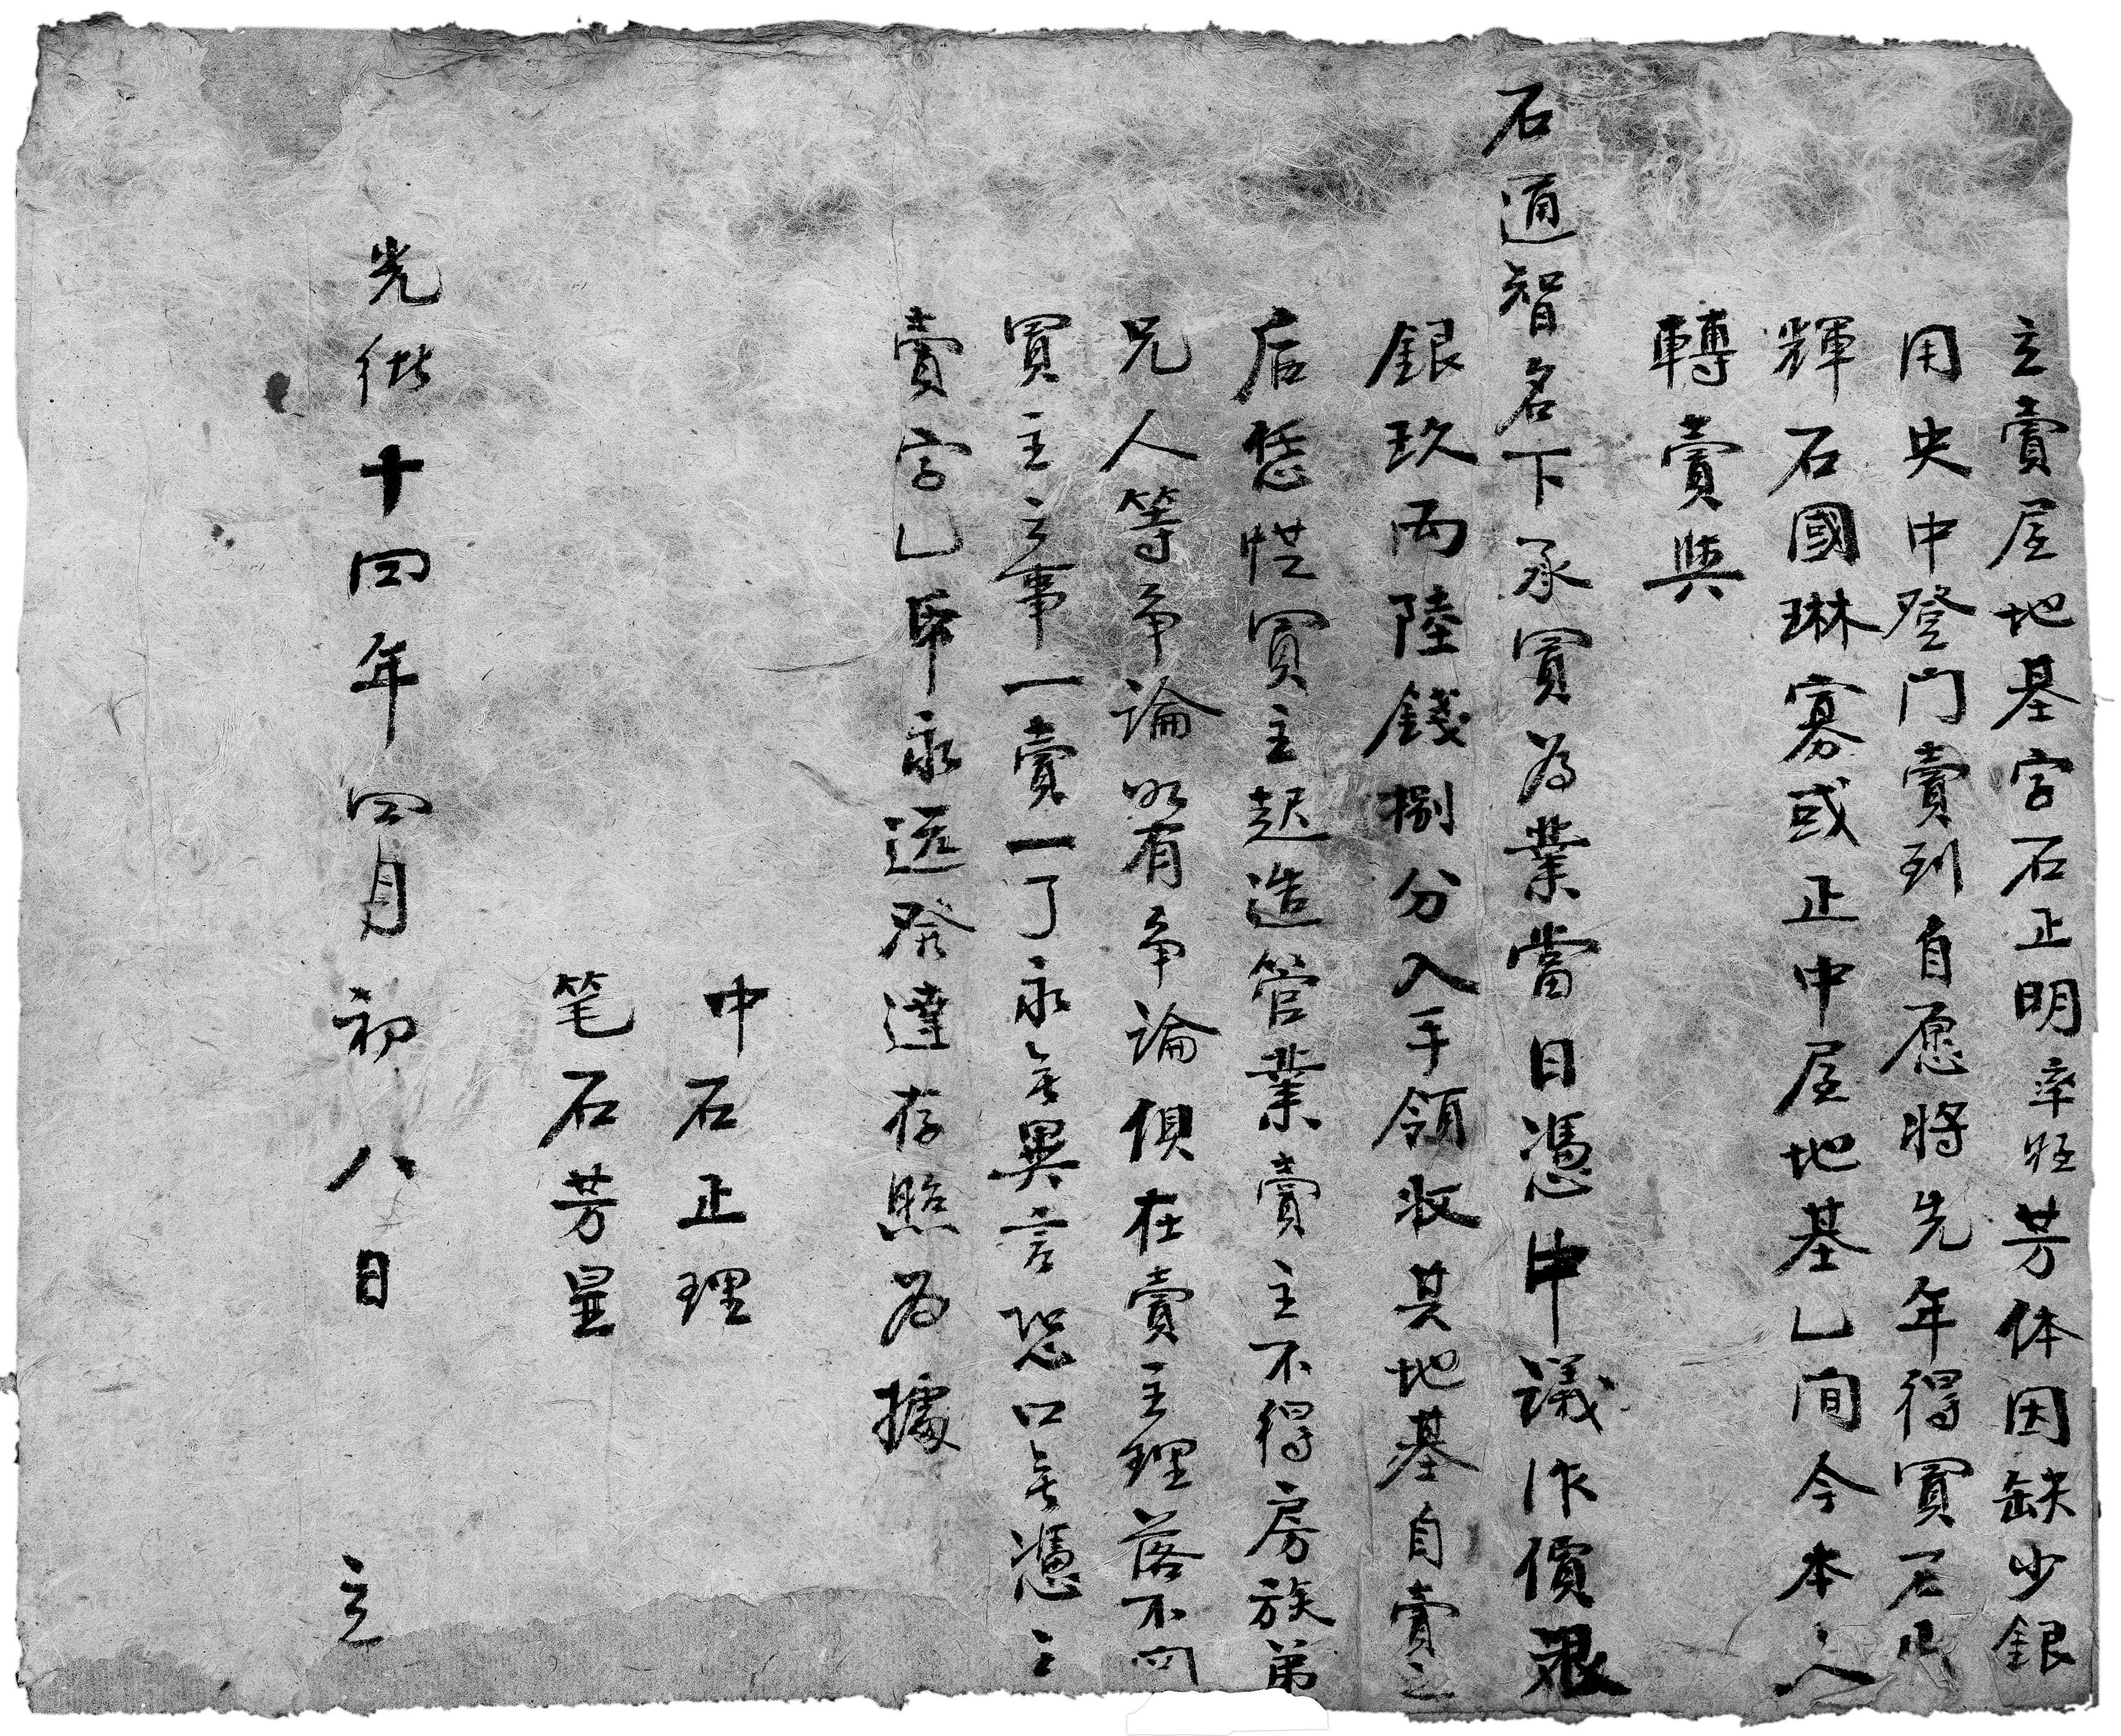 立賣屋地基字石正明率姪芳体因缺少銀
用央中登门賣到自愿將先年得買石
輝石國琳寡或正中屋地基乙间今本人
轉賣與
石通智名下承買為業當日憑中議作價銀
銀玖両陸錢捌分入手領收其地基自賣之
后恁怑買主起造管業賣主不得房族弟
兄人等争論如有争論俱在賣主理落不问
買主之事一賣一了永无異言恐口无憑立
賣字乙帋永远発達存照為據
中石正理
笔石芳星
光緒十四年四月初八日 立